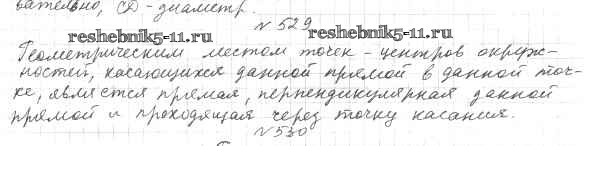 вательно, CD - диаметр.
№ 529
reshebnik5-11.ru reshebnik5-11.ru
Геометрическим местом точек - центров окруж-
ностей, касающихся данной прямой в данной точ-
ке, является прямая, перпендикулярная данной
прямой и проходящая через точку касания.
№ 530